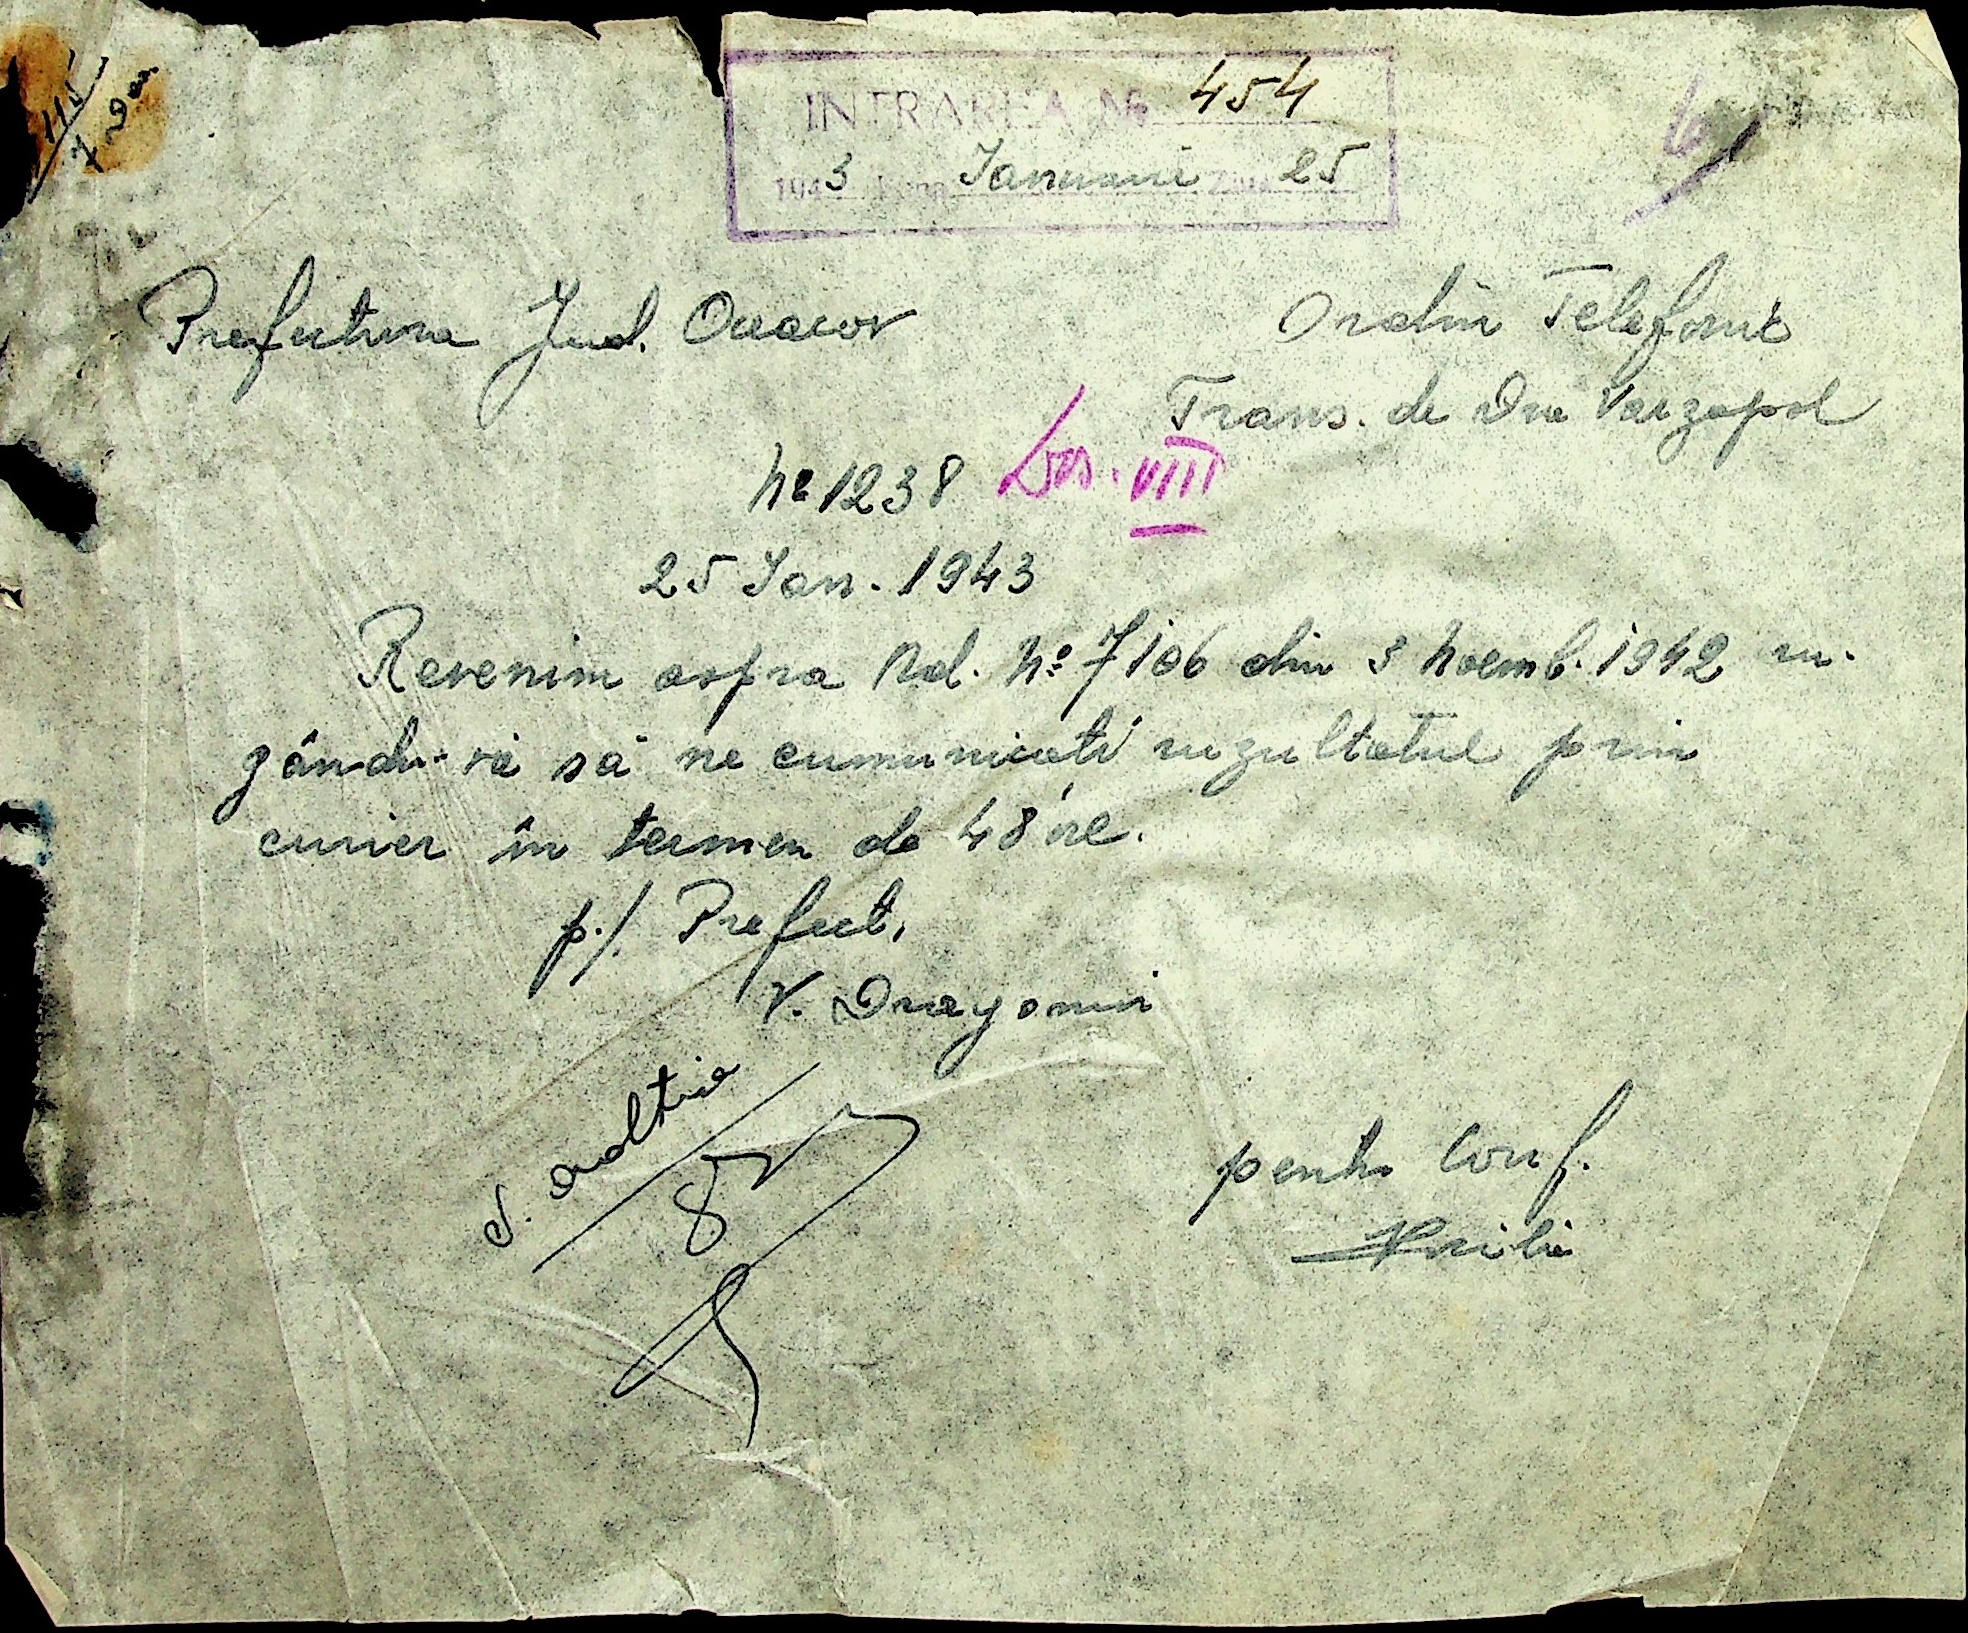 INTRAREA No 454
1943 Luna Ianuarie Ziua 25
Prefectura Jud. Oceacov
Ordin Telefonic
Trans. de Dra Varzopol
No 1238 Dos. VIII
25 Ian. 1943
Revenim aspra Ord. No 7106 din 3 Noemb. 1942 ru-
gându-vă să ne cumunicati rezultatul prin
curier în termen de 48 ore.
p./. Prefect,
V. Dragomir
pentru Conf.